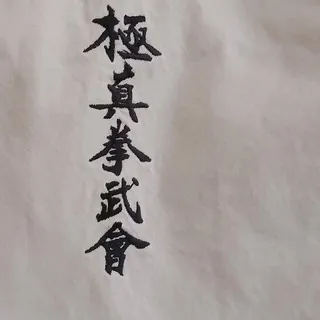 極真拳武會